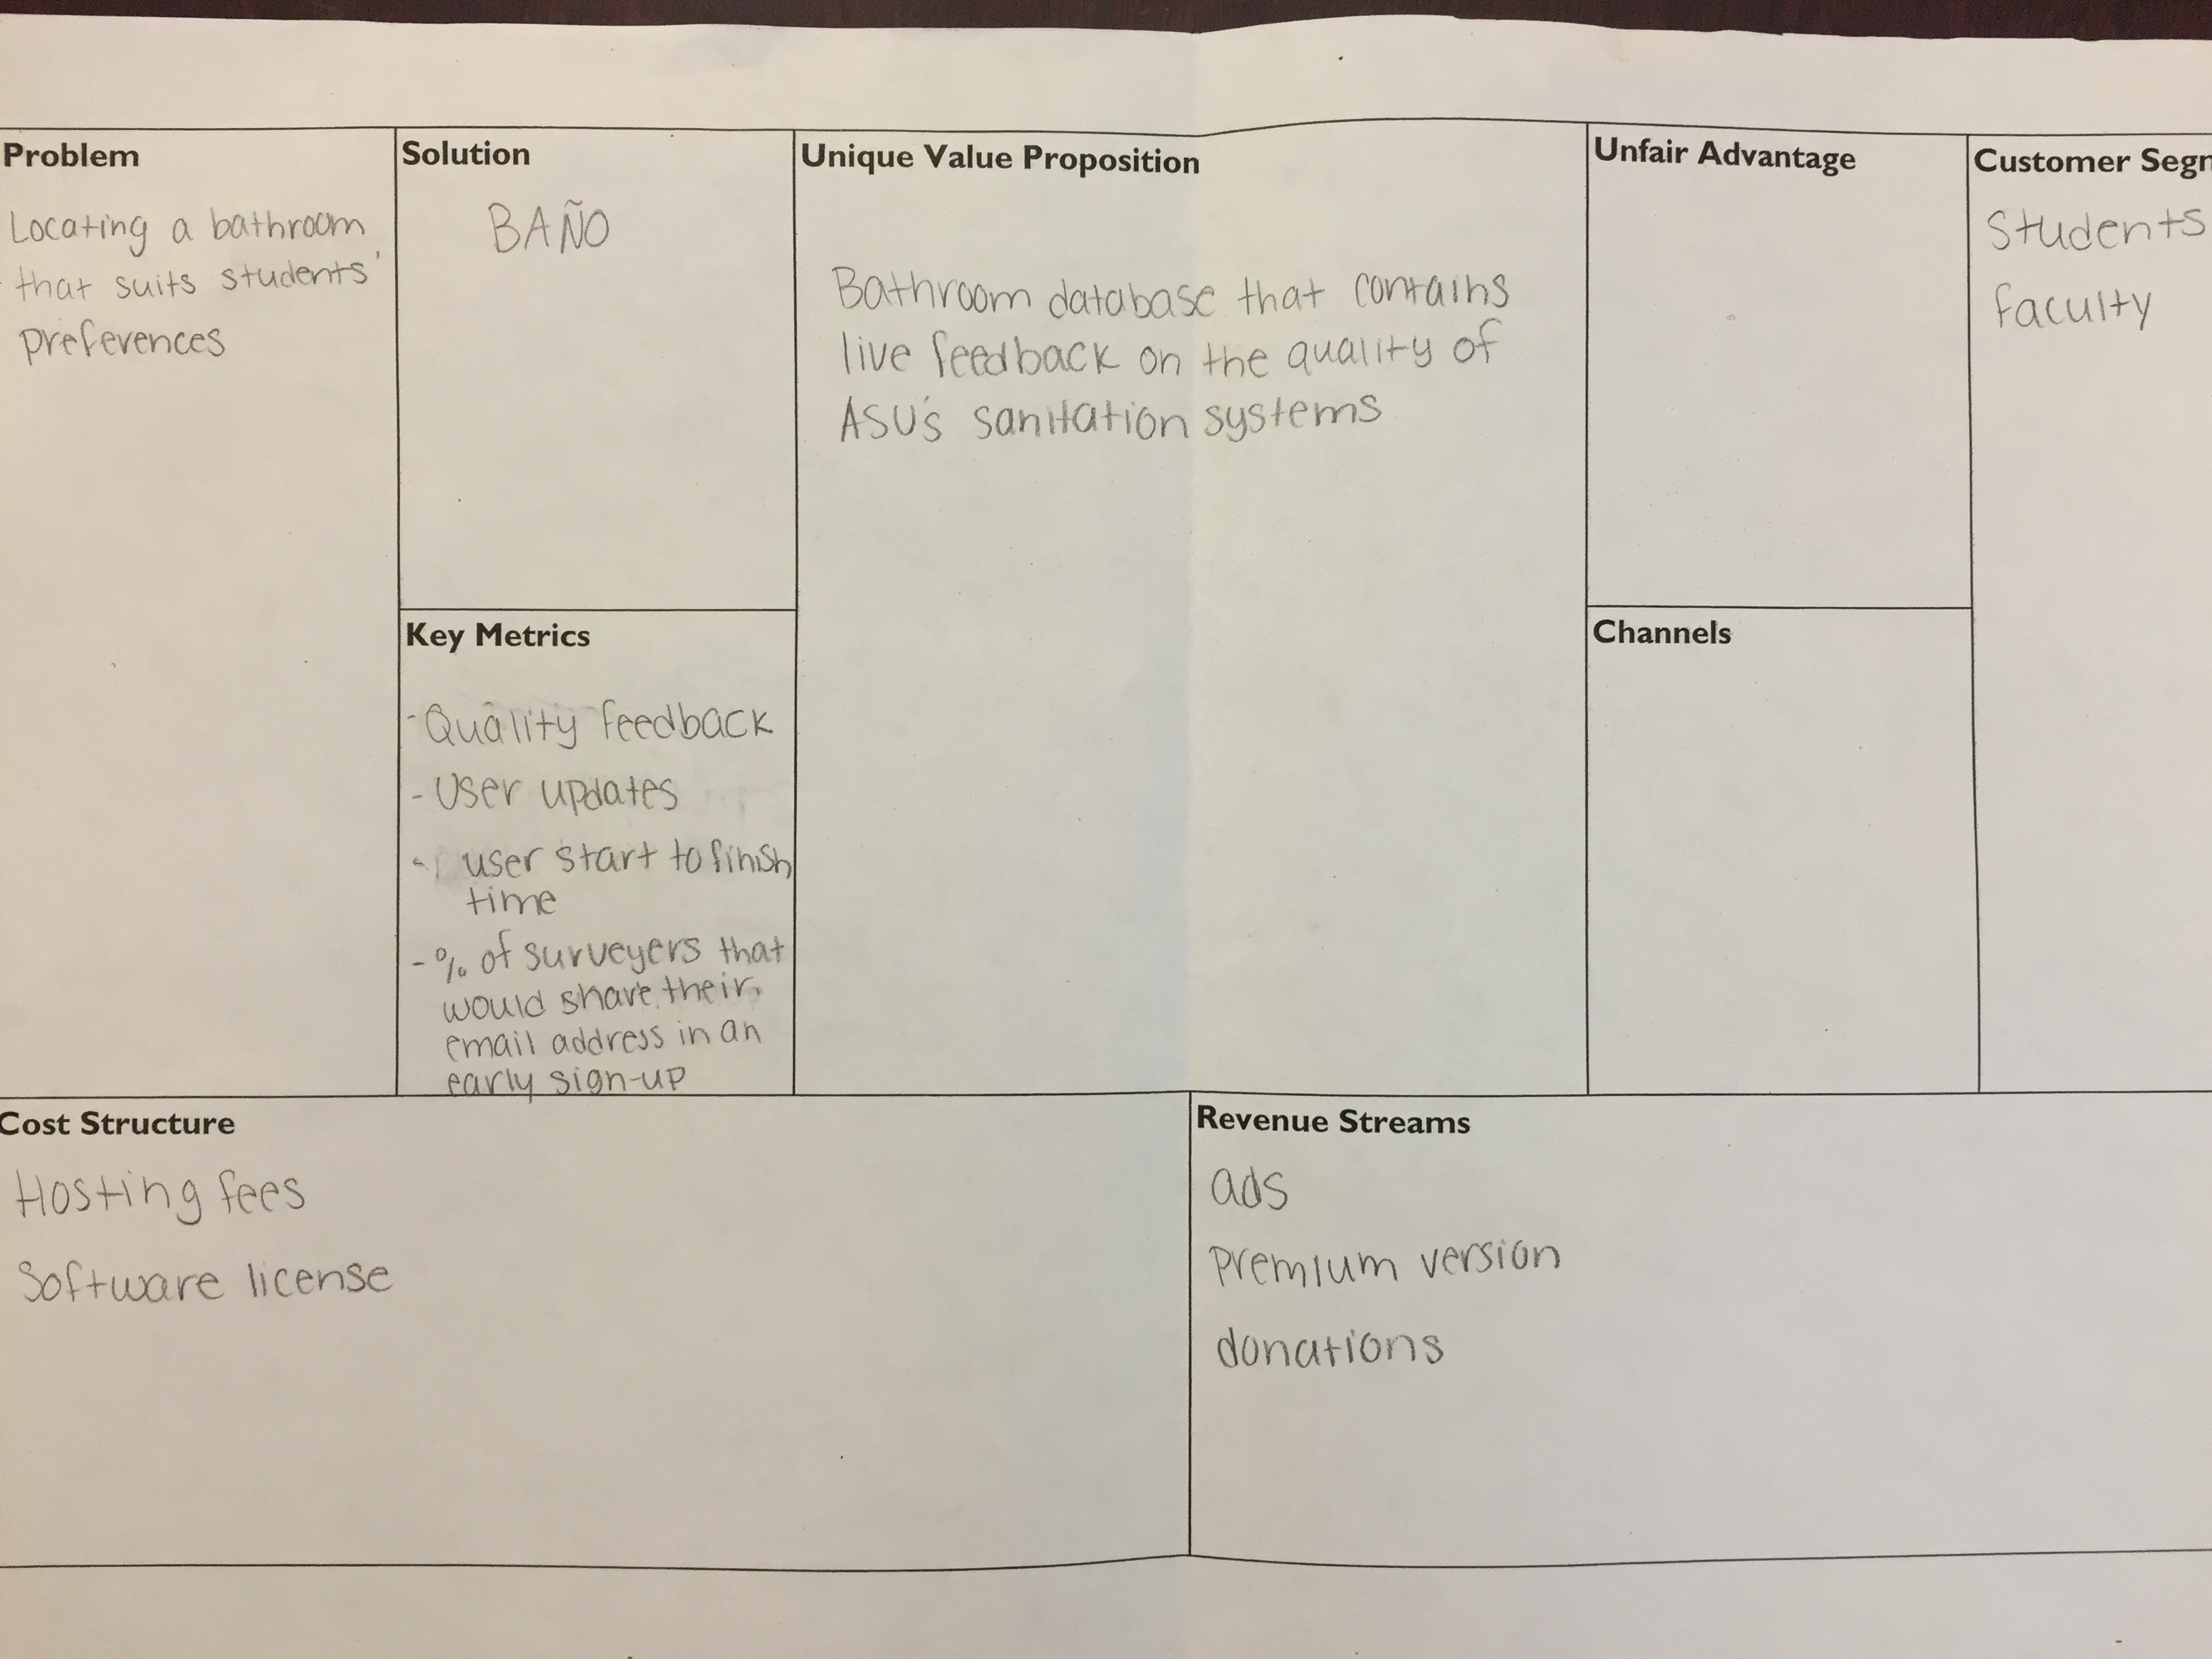 Problem
Locating a bathroom
that suits students'
preferences
Solution
BAÑO
Key Metrics
-Quality feedback
- User updates
- user start to finish
time
- % of surveyers that
would share their
email address in an
early sign-up
Unique Value Proposition
Bathroom database that contains
live feedback on the quality of
ASU's sanitation systems
Unfair Advantage
Channels
Customer Segm
Students
faculty
Cost Structure
Hosting fees
Software license
Revenue Streams
ads
premium version
donations